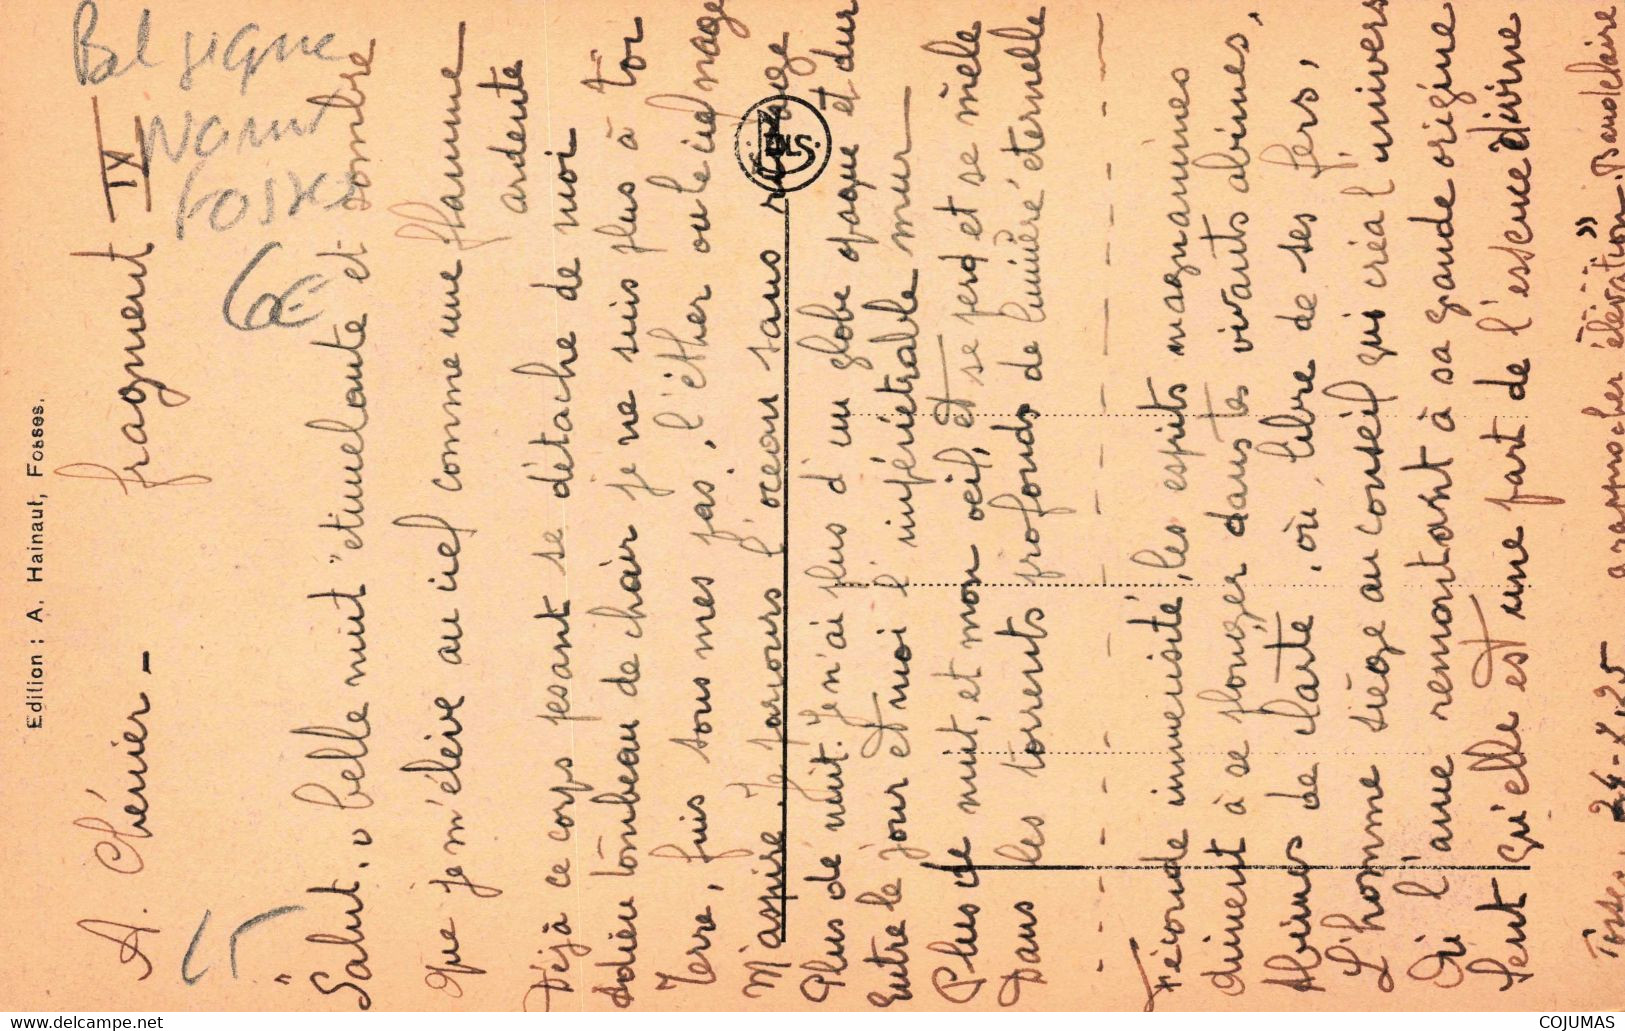 Edition : A. Hainaut, Fosses.
A. Chénier – fragment IX
Belgique
Namur
Fosses
6€
15
"Salut, ô belle nuit étincelante et sombre
Que je m'élève au ciel comme une flamme
ardente
Déjà ce corps pesant se détache de moi
Adieu tombeau de chair je ne suis plus à toi
Terre, fuis sous mes pas, l'éther où le ciel nage
M'aspire, je parcours l'océan sans rivage
Plus de nuit. je n'ai plus d'un globe opaque et dur
Entre le jour et moi l'impénétrable mur
Plus de nuit, et mon oeil, et se perd et se mêle
Dans les torrents profonds de lumière éternelle
Féconde immensité, les esprits magnanimes
Aiment à se plonger dans tes vivants abimes,
Abimes de clarté, où, libre de ses fers,
L'homme siège au conseil qui créa l'univers
Où l'âme remontant à sa grande origine
Sent qu'elle est une part de l'essence divine
Fosses, 24-2.25 à rapprocher "élévation" Baudelaire
COJUMAS
www.delcampe.net